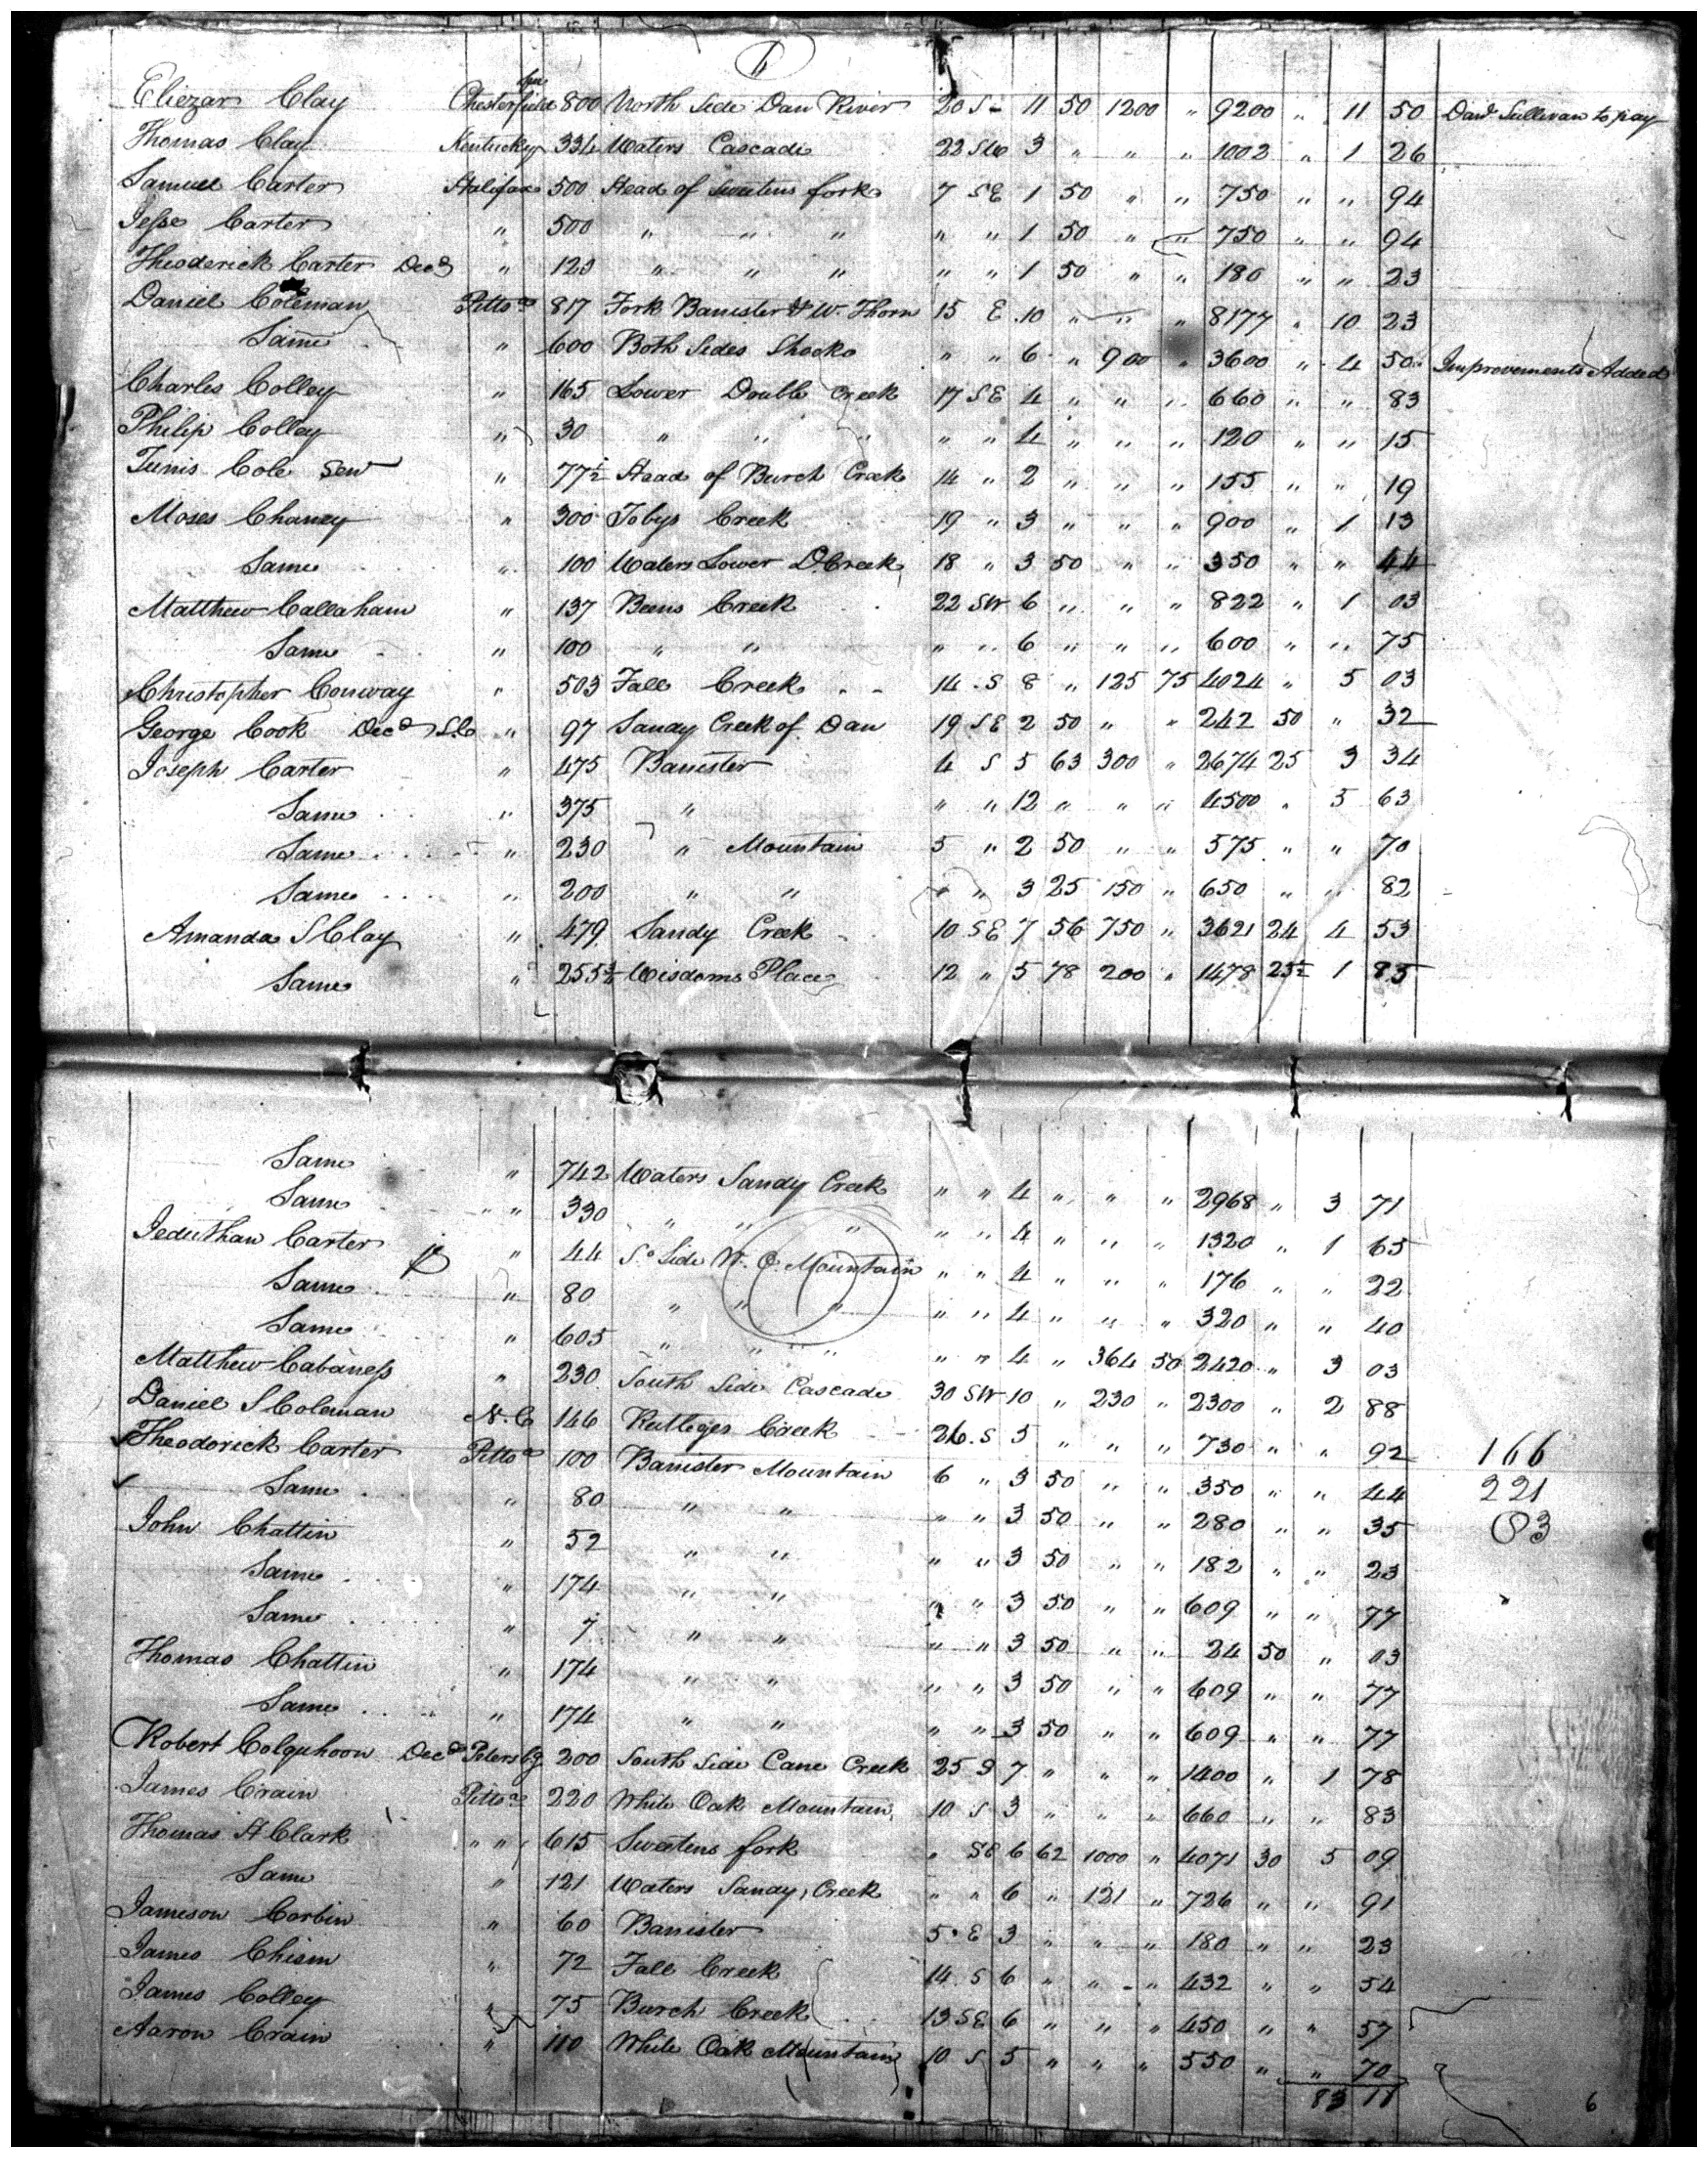 Eliezar Clay Chesterfield 800 North Side Dan River 20 S - 11 50 1200 " 9200 " 11 50 Davd Sullivan to pay
Thomas Clay Kentucky 334 Waters Cascade 22 SW 3 " " " 1002 " 1 26
Samuel Carter Halifax 500 Head of Sweetens fork 7 SE 1 50 " " 750 " " 94
Jesse Carter " 500 " " " " " 1 50 " " 750 " " 94
Theoderick Carter Decd " 120 " " " " " 1 50 " " 180 " " 23
Daniel Coleman Pittsa 817 Fork Banister & W. Thorn 15 E 10 " " " 8177 " 10 23
Same " 600 Both Sides Shocko " " 6 " 900 " 3600 " 4 50 Improvements Added
Charles Colley " 165 Lower Double Creek 17 SE 4 " " " 660 " " 83
Philip Colley " 30 " " " " " 4 " " " 120 " " 15
Tunis Cole Senr " 77½ Head of Burch Creek 14 " 2 " " " 155 " " 19
Moses Chaney " 300 Tobys Creek 19 " 3 " " " 900 " 1 13
Same " 100 Waters Lower D. Creek 18 " 3 50 " " 350 " " 44
Matthew Callaham " 137 Beens Creek 22 SW 6 " " " 822 " 1 03
Same " 100 " " " " 6 " " " 600 " " 75
Christopher Conway " 503 Fall Creek 14 S 8 " 125 75 4024 " 5 03
George Cook Decd S.C " 97 Sandy Creek of Dan 19 SE 2 50 " " 242 50 " 32
Joseph Carter " 475 Banister 4 S 5 63 300 " 2674 25 3 34
Same " 375 " " " 12 " " " 4500 " 5 63
Same " 230 " Mountain 5 " 2 50 " " 575 " " 70
Same " 200 " " " " 3 25 150 " 650 " " 82
Amanda S Clay " 479 Sandy Creek 10 SE 7 56 750 " 3621 24 4 53
Same " 255¾ Wisdoms Place 12 " 5 78 200 " 1478 23½ 1 85
Same " 742 Waters Sandy Creek " " 4 " " " 2968 " 3 71
Same " 330 " " " " " 4 " " " 1320 " 1 65
Jeduthan Carter " 44 So Side W. O. Mountain " " 4 " " " 176 " " 22
Same " 80 " " " " " 4 " " " 320 " " 40
Same " 605 " " " " " 4 " 364 50 2420 " 3 03
Matthew Cabaness " 230 South Side Cascade 30 SW 10 " 230 " 2300 " 2 88
Daniel S Coleman N. C 146 Rutleges Creek 26 S 5 " " " 730 " " 92
Theodorick Carter Pittsa 100 Banister Mountain 6 " 3 50 " " 350 " " 44 166
Same " 80 " " " " 3 50 " " 280 " " 35 221
John Chattin " 52 " " " " 3 50 " " 182 " " 23 83
Same " 174 " " " " 3 50 " " 609 " " 77
Same " 7 " " " " 3 50 " " 24 50 " 03
Thomas Chattin " 174 " " " " 3 50 " " 609 " " 77
Same " 174 " " " " 3 50 " " 609 " " 77
Robert Colquhoon Decd Petersbg 200 South Side Cane Creek 25 S 7 " " " 1400 " 1 78
James Crain Pittsa 220 White Oak Mountain 10 S 3 " " " 660 " " 83
Thomas A Clark " " 615 Sweetens fork " SE 6 62 1000 " 4071 30 5 09
Same " 121 Waters Sandy Creek " " 6 " 121 " 726 " " 91
Jameson Corbin " 60 Banister 5 E 3 " " " 180 " " 23
James Chism " 72 Fall Creek 14 S 6 " " " 432 " " 54
James Colley " 75 Burch Creek 13 SE 6 " " " 450 " " 57
Aaron Crain " 110 White Oak Mountain 10 S 5 " " " 550 " " 70
83 11
6